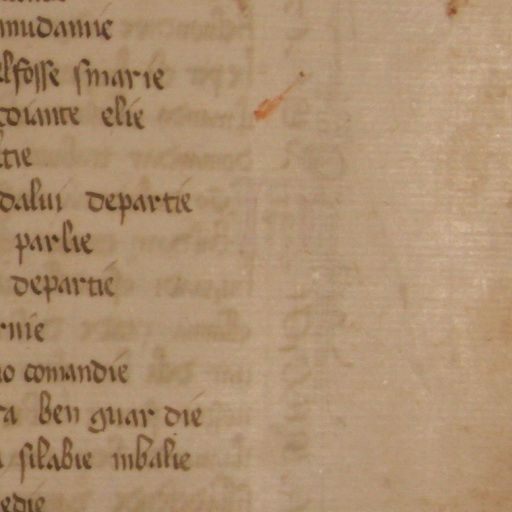 mudamie
lfosse smarie
coiante elie
tie
dalui departie
parlie
departie
rnie
no comandie
ta ben guar die
silabie inbalie
edie